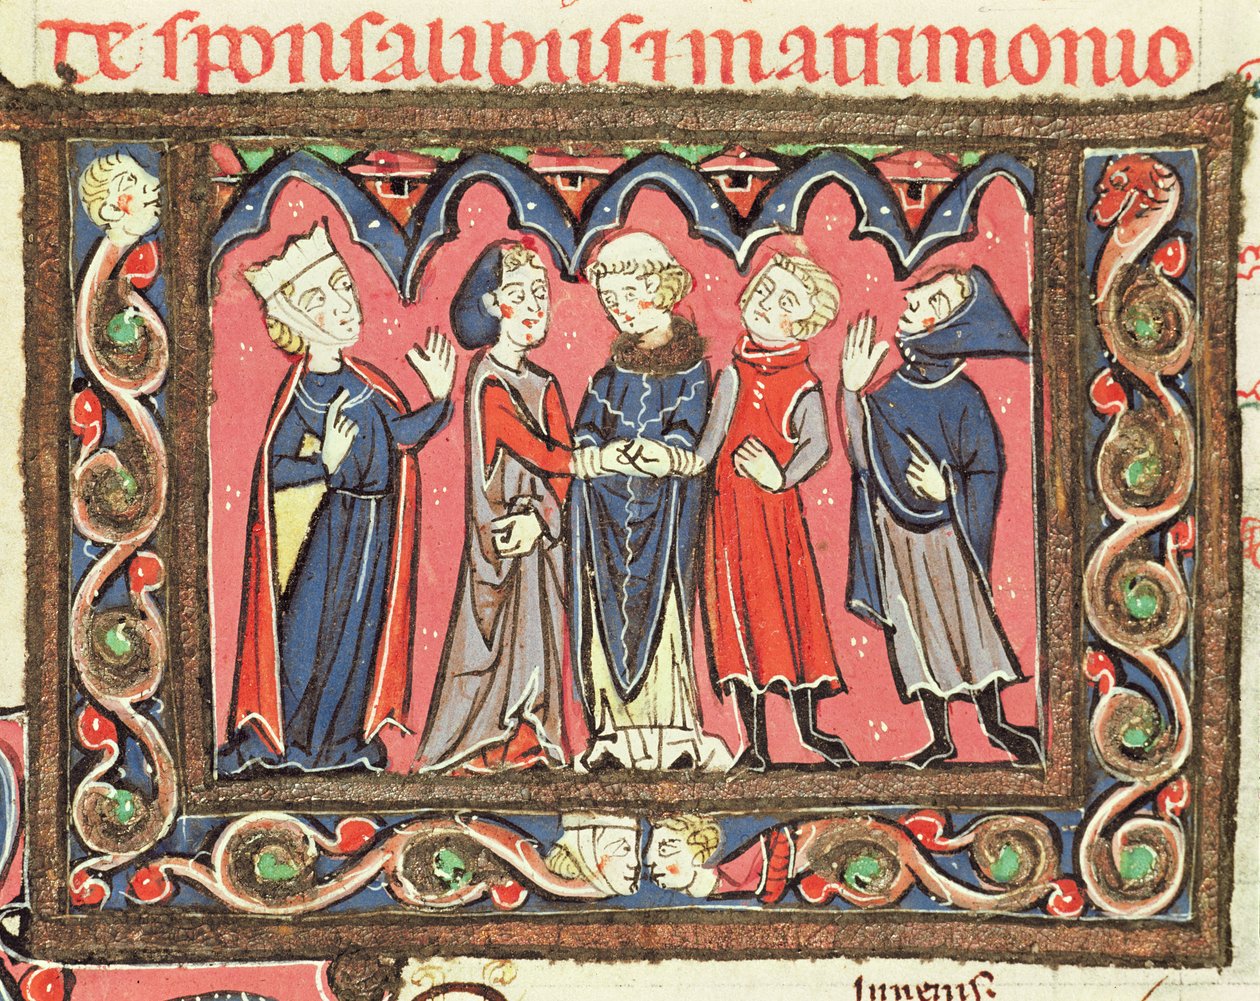 De sponsalibus ⁊ matrimonio
Iuuenis.